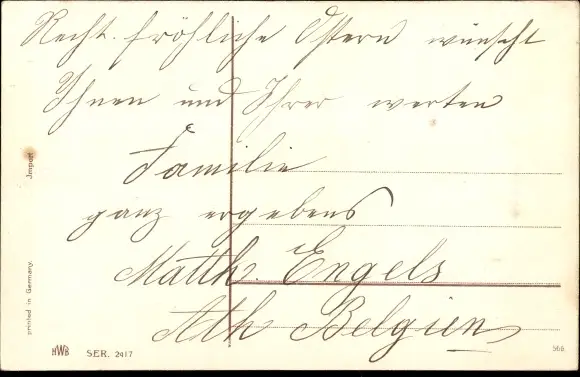 Recht fröhliche Ostern wünscht
Ihnen und Ihrer werten
Familie
ganz ergebens
Matth. Engels
Ath Belgien
Import
printed in Germany.
HWB SER. 2417
566